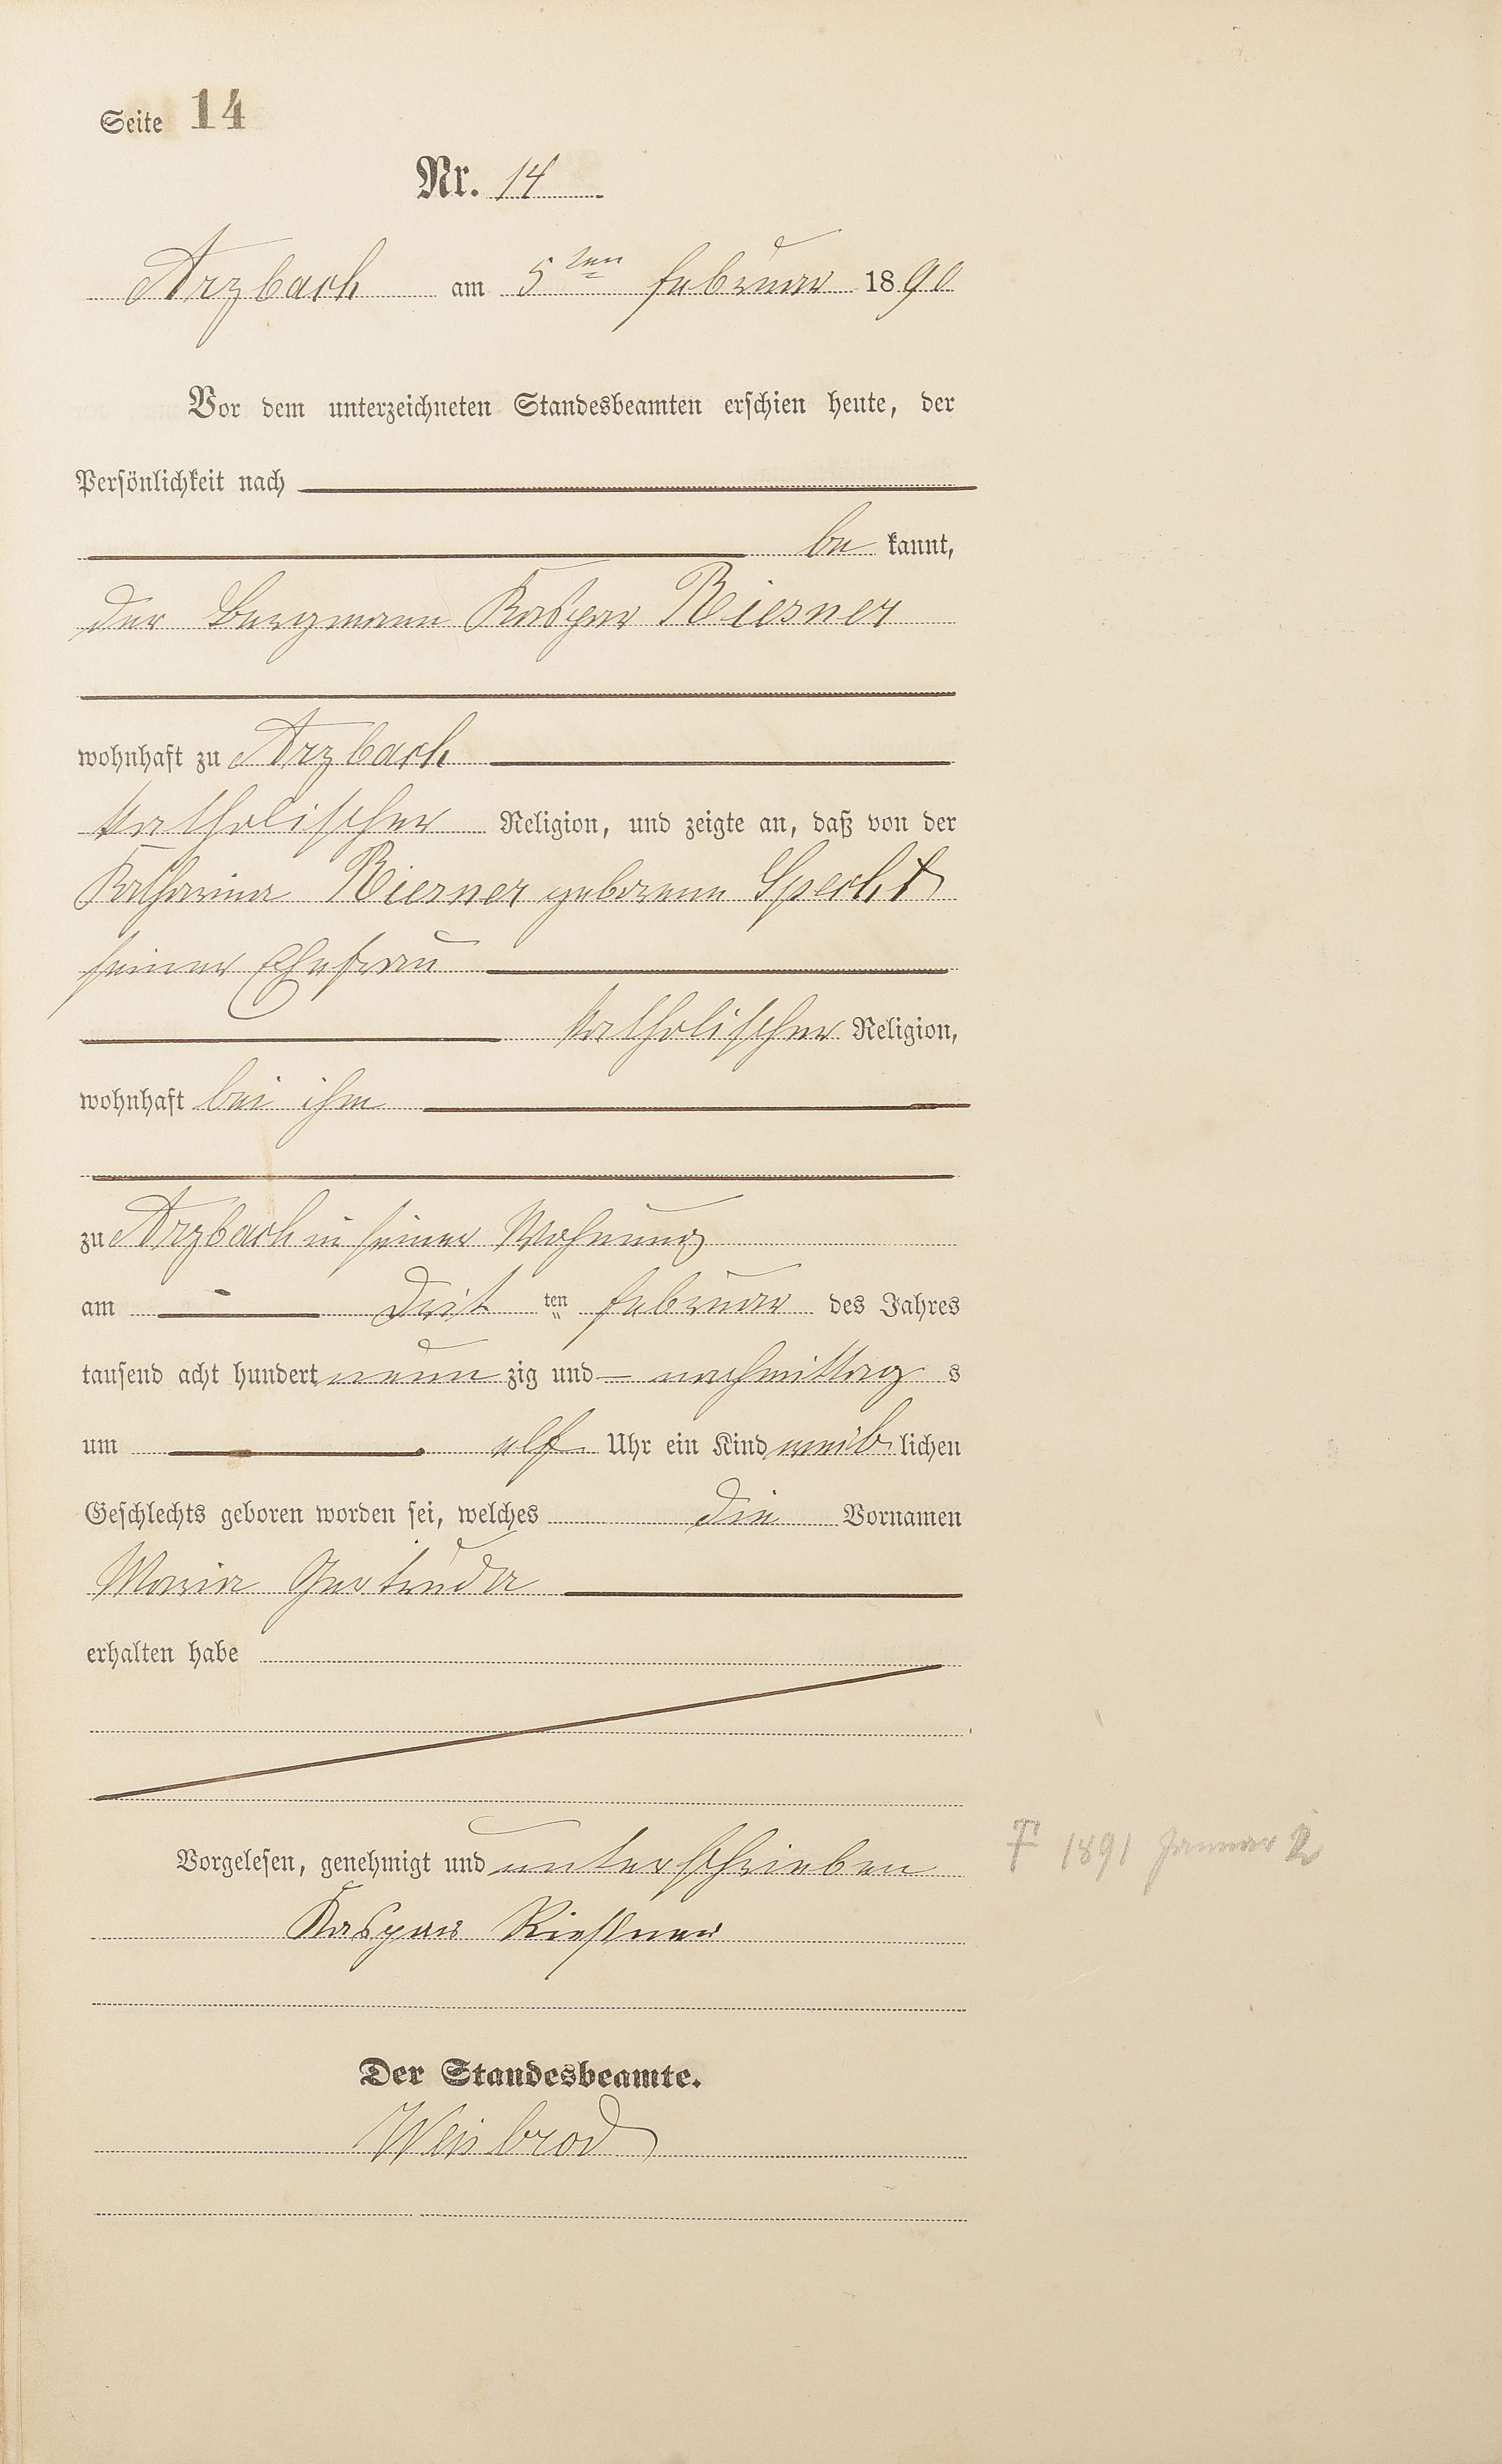 Seite 14
Nr. 14
Arzbach am 5ten Februar 1890
Vor dem unterzeichneten Standesbeamten erschien heute, der
Persönlichkeit nach
be kannt,
der Bergmann Kaspar Riesner
wohnhaft zu Arzbach
katholischer Religion, und zeigte an, daß von der
Katharina Riesner geborene Specht
seiner Ehefrau
katholischer Religion,
wohnhaft bei ihm
zu Arzbach in seiner Wohnung
am drit ten Februar des Jahres
tausend acht hundert neun zig und nachmittag s
um elf Uhr ein Kind weib lichen
Geschlechts geboren worden sei, welches die Vornamen
Maria Gertruda
erhalten habe
Vorgelesen, genehmigt und unterschrieben
† 1891 Januar
Kaspar Riesner
Der Standesbeamte.
Weisbrod